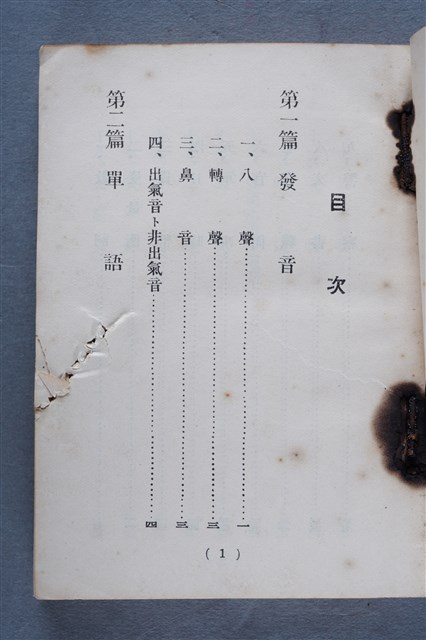 目次
第一篇 發音
一、八聲……一
二、轉聲……三
三、鼻音……三
四、出氣音ト非出氣音……四
第二篇 單語
(1)